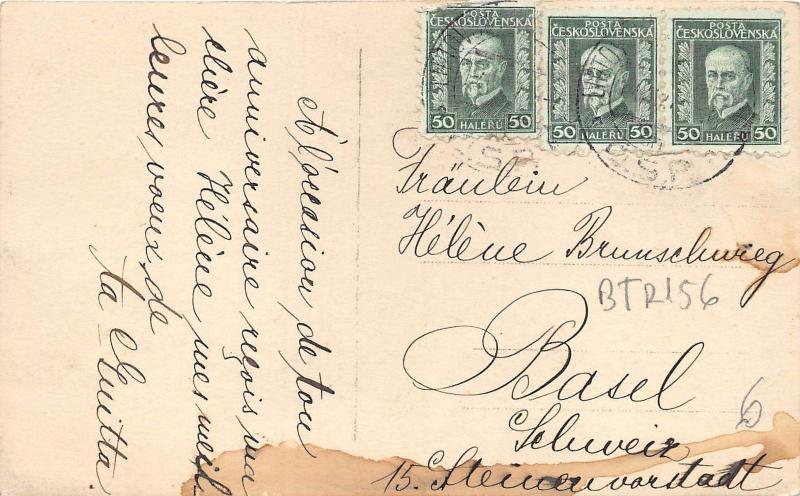 A l'occasion de ton
anniversaire reçois ma
chère Hélène mes meil
leures voeux de
ta Guitta.
POSTA
ČESKOSLOVENSKA
50 HALÉŘŮ 50
POSTA
ČESKOSLOVENSKA
50 HALÉŘŮ 50
POSTA
ČESKOSLOVENSKA
50 HALÉŘŮ 50
Fräulein
Hélène Brunschwieg
BTR156
Basel
6
Schweiz
15. Steinenvorstadt